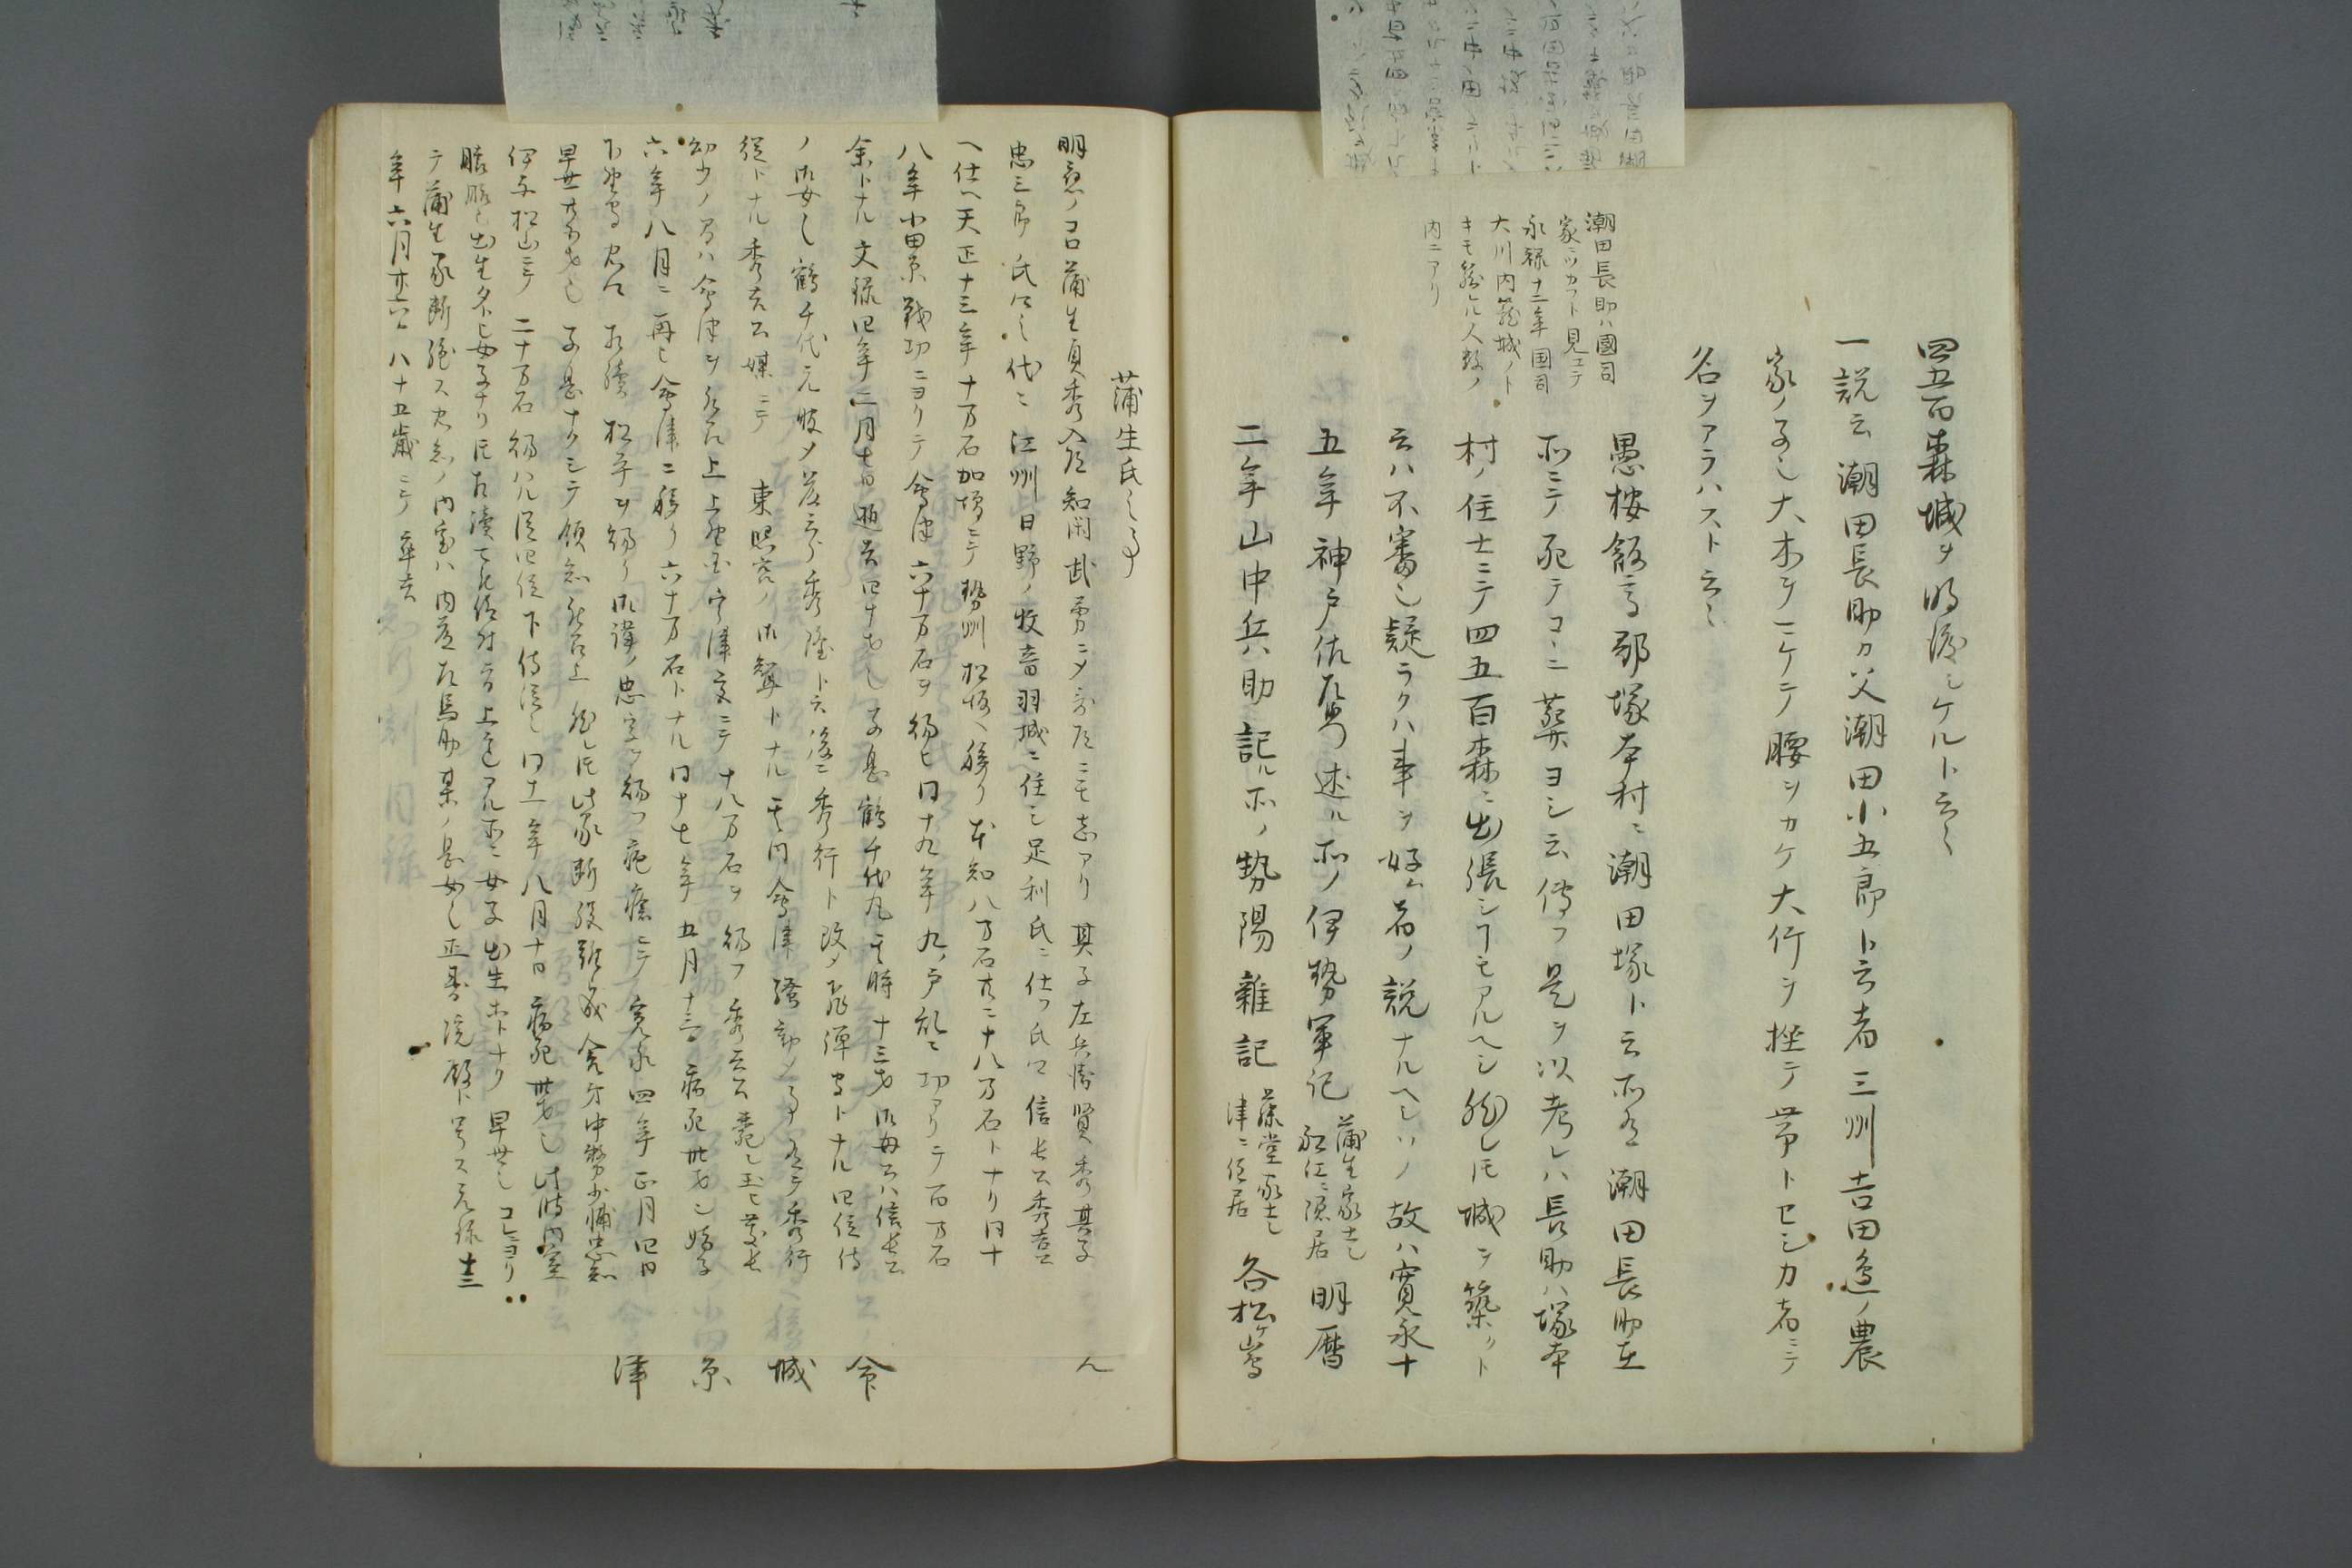 四五百森城ヲ明渡シケルト云々
一説云潮田長助カ父潮田小五郎ト云者三州吉田辺ノ農
家ノ子也大木ヲニケテ腰ヲカケ大竹ヲ捏テ帯トセシカ者ニテ
名ヲアラハスト云々
潮田長助ハ國司
家ニツカフト見エテ
永録十二年国司
大川内籠城ノト
キモ籠ル人数ノ
内ニアリ
愚按飯高郡塚本村ニ潮田塚ト云所有潮田長助在
所ニテ死テコヽニ葬ヨシ云傳フ是ヲ以考レハ長助ハ塚本
村ノ住士ニテ四五百森ニ出張シヿモアルヘシ然レ𪜈城ヲ築クト
云ハ不審也疑ラクハ事ヲ好ム者ノ説ナルヘシソノ故ハ寛永十
五年神戸佐左衛門述ル所ノ伊勢軍記
蒲生家士也
松江ニ隠居
明暦
二年山中兵助記ル所ノ勢陽雑記
藤堂家士也
津ニ住居
各松ヶ嶌
蒲生氏之事
明應ノコロ蒲生貞秀入道知閑武勇ニメ歌道ニモ志アリ其子左兵衛賢秀其子
忠三郎氏郷之代ニ江州日野ノ牧音羽城ニ住シ足利氏ニ仕フ氏郷信長公秀吉公
ヘ仕ヘ天正十三年十万石加増ニテ勢州松坂ヘ移リ本知八万石共ニ十八万石トナリ同十
八年小田原戦功ニヨリテ會津六十万石ヲ賜ヒ同十九年九ノ戸乱ニ功アリテ百万石
余トナル文録四年二月七日逝去四十才也子息鶴千代丸其時十三才御母公ハ信長公
ノ御女也鶴千代元服メ藤三郎秀隆ト云後ニ秀行ト改メ飛弾守トナル四位侍
從トナル秀吉公媒ニテ 東照宮ノ御聟トナル其間會津騒動ノ事有テ秀行
幼少ノ間ハ會津ヲ召上上野国宇津宮ニテ十八万石ヲ賜フ秀吉公薨シ玉ヒ慶長
六年八月ニ再ヒ會津ニ移リ六十万石トナル同十七年五月十三日病死卅才也嫡子
下野守忠郷相續松平ヲ賜リ御諱ノ忠字ヲ賜フ疱瘡ニテ寛永四年正月四日
早世廿五才也子息ナクシテ領知被召上然レ𪜈此家断絶難成舎弟中務少輔忠知
伊予松山ニテ二十万石賜ハル従四位下侍従也同十一年八月十日病死卅才也此時内室
懐胎ニ出生タトヒ女子ナリ𪜈相續可被仰付旨上意アル所ニ女子出生ホトナク早世也コレヨリ
テ蒲生家断絶ス忠知ノ内室ハ内藤左馬助某ノ息女也正壽院殿ト号ス元禄十三
年六月廿六日八十五歳ニテ卒去
会
城
原
津